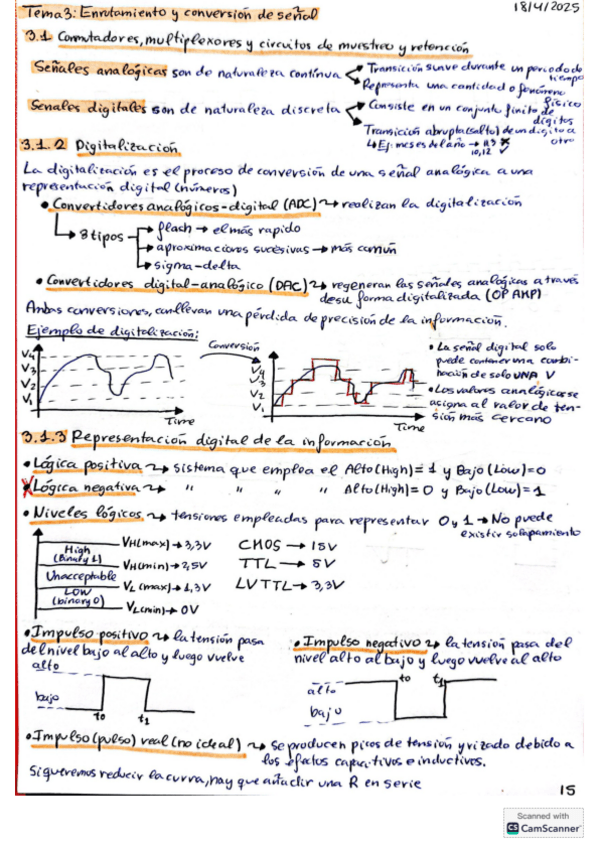 Tema 3: Enrutamiento y conversión de señal
18/4/2025
3.1 Conmutadores, multiplexores y circuitos de muestreo y retención
Señales analógicas son de naturaleza contínua
Transición suave durante un periodo de tiempo
Representa una cantidad o fenómeno físico
Señales digitales son de naturaleza discreta
Consiste en un conjunto finito de dígitos
Transición abrupta (salto) de un dígito a otro
Ej: meses del año → 11.3 ✗
10,12 ✓
3.1.2 Digitalización
La digitalización es el proceso de conversión de una señal analógica a una
representación digital (números)
• Convertidores analógicos-digital (ADC) → realizan la digitalización
→ 3 tipos
flash → el más rapido
aproximaciones sucesivas → más común
sigma-delta
• Convertidores digital-analógico (DAC) → regeneran las señales analógicas a través
de su forma digitalizada (OP AMP)
Ambas conversiones, conllevan una pérdida de precisión de la información.
Ejemplo de digitalización:
V4
V3
V2
V1
Time
Conversión
V4
V3
V2
V1
Time
• La señal digital solo
puede contener una combi-
nación de solo UNA V
• Los valores analógicos se
asigna al valor de ten-
sión más cercano
3.1.3 Representación digital de la información
• Lógica positiva → sistema que emplea el Alto (High) = 1 y Bajo (Low) = 0
• Lógica negativa → " " " " Alto (High) = 0 y Bajo (Low) = 1
• Niveles lógicos → tensiones empleadas para representar 0 y 1 → No puede
existir solapamiento
High
(Binary 1)
Unacceptable
LOW
(binary 0)
VH(max) → 3,3V
VH(min) → 2,5V
VL(max) → 1,3V
VL(min) → 0V
CMOS → 15V
TTL → 5V
LVTTL → 3,3V
• Impulso positivo → la tensión pasa
del nivel bajo al alto y luego vuelve
alto
bajo
t0
t1
• Impulso negativo → la tensión pasa del
nivel alto al bajo y luego vuelve al alto
alto
bajo
t0
t1
• Impulso (pulso) real (no ideal) → Se producen picos de tensión y rizado debido a
los efectos capacitivos e inductivos.
Si queremos reducir la curva, hay que añadir una R en serie
15
Scanned with
CS CamScanner